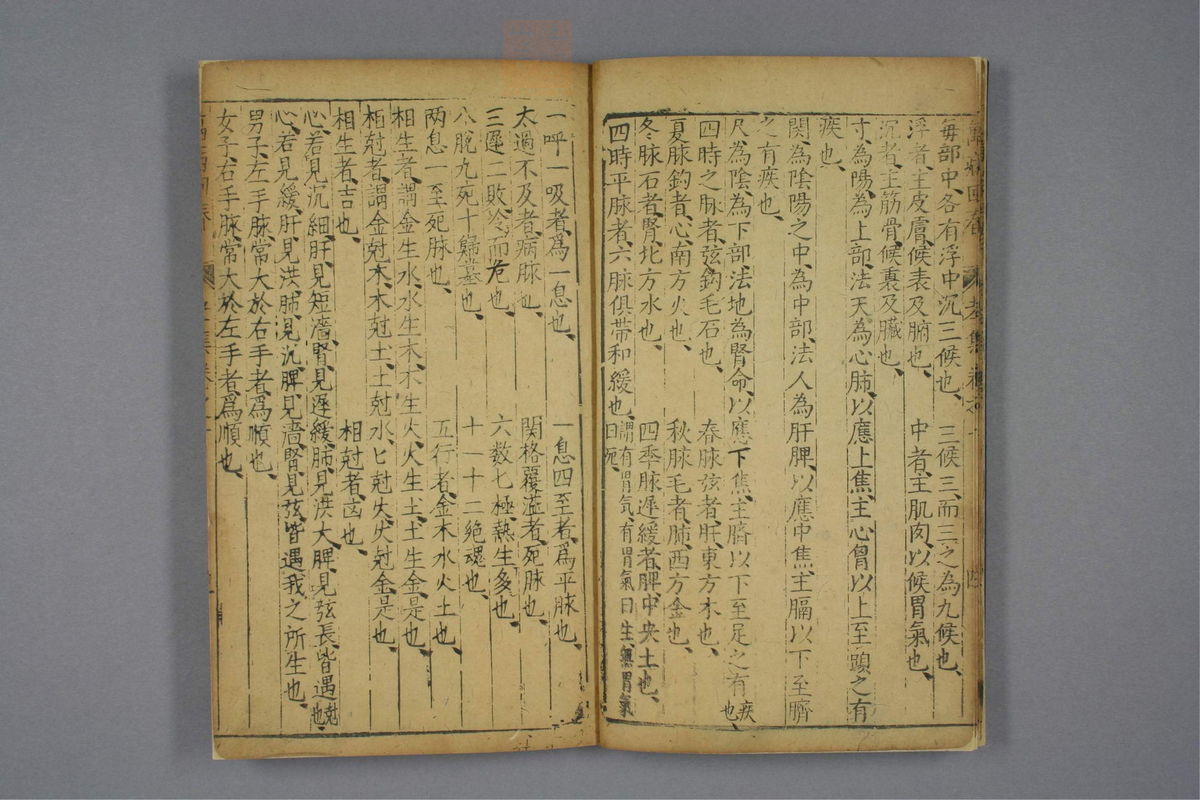 每部中、各有浮中沉三候也、 三候三而三之為九候也、
浮者、主皮膚、候表及腑也、 中者、主肌肉以候胃氣也、
沉者、主筋骨、候裏及臟也、
寸為陽、為上部、法天、為心肺、以應上焦、主心胷以上至頭之有
疾也、
関為陰陽之中、為中部、法人為肝脾、以應中焦、主膈以下至臍
之有疾也、
尺為陰、為下部、法地為腎命、以應下焦、主臍以下至足之有疾也、
四時之脉者、弦鈎毛石也、 春脉弦者、肝、東方木也、
夏脉鈎者、心、南方火也、 秋脉毛者、肺、西方金也、
冬脉石者、腎、北方水也、 四季脉遲緩者、脾、中央土也、
四時平脉者、六脉俱帶和緩也、謂有胃気、有胃氣曰生、無胃氣曰死、
一呼一吸者、為一息也、 一息四至者、為平脉也、
太過不及者、病脉也、 関格覆溢者、死脉也、
三遲二敗、冷而危也、 六数七極、熱生多也、
八脫九死十歸墓也、 十一十二絶魂也、
两息一至死脉也、 五行者、金木水火土也、
相生者、謂金生水、水生木、木生火、火生土、土生金是也、
相尅者、謂金尅木、木尅土、土尅水、匕尅火、火尅金是也、
相生者、吉也、 相尅者、凶也、
心若見沉細、肝見短濇、腎見遲緩、肺見洪大、脾見弦長、皆遇尅也、
心若見緩、肝見洪、肺見沉、脾見濇、腎見弦、皆遇我之所生也、
男子、左手脉常大於右手者、為順也、
女子、右手脉常大於左手者、為順也、